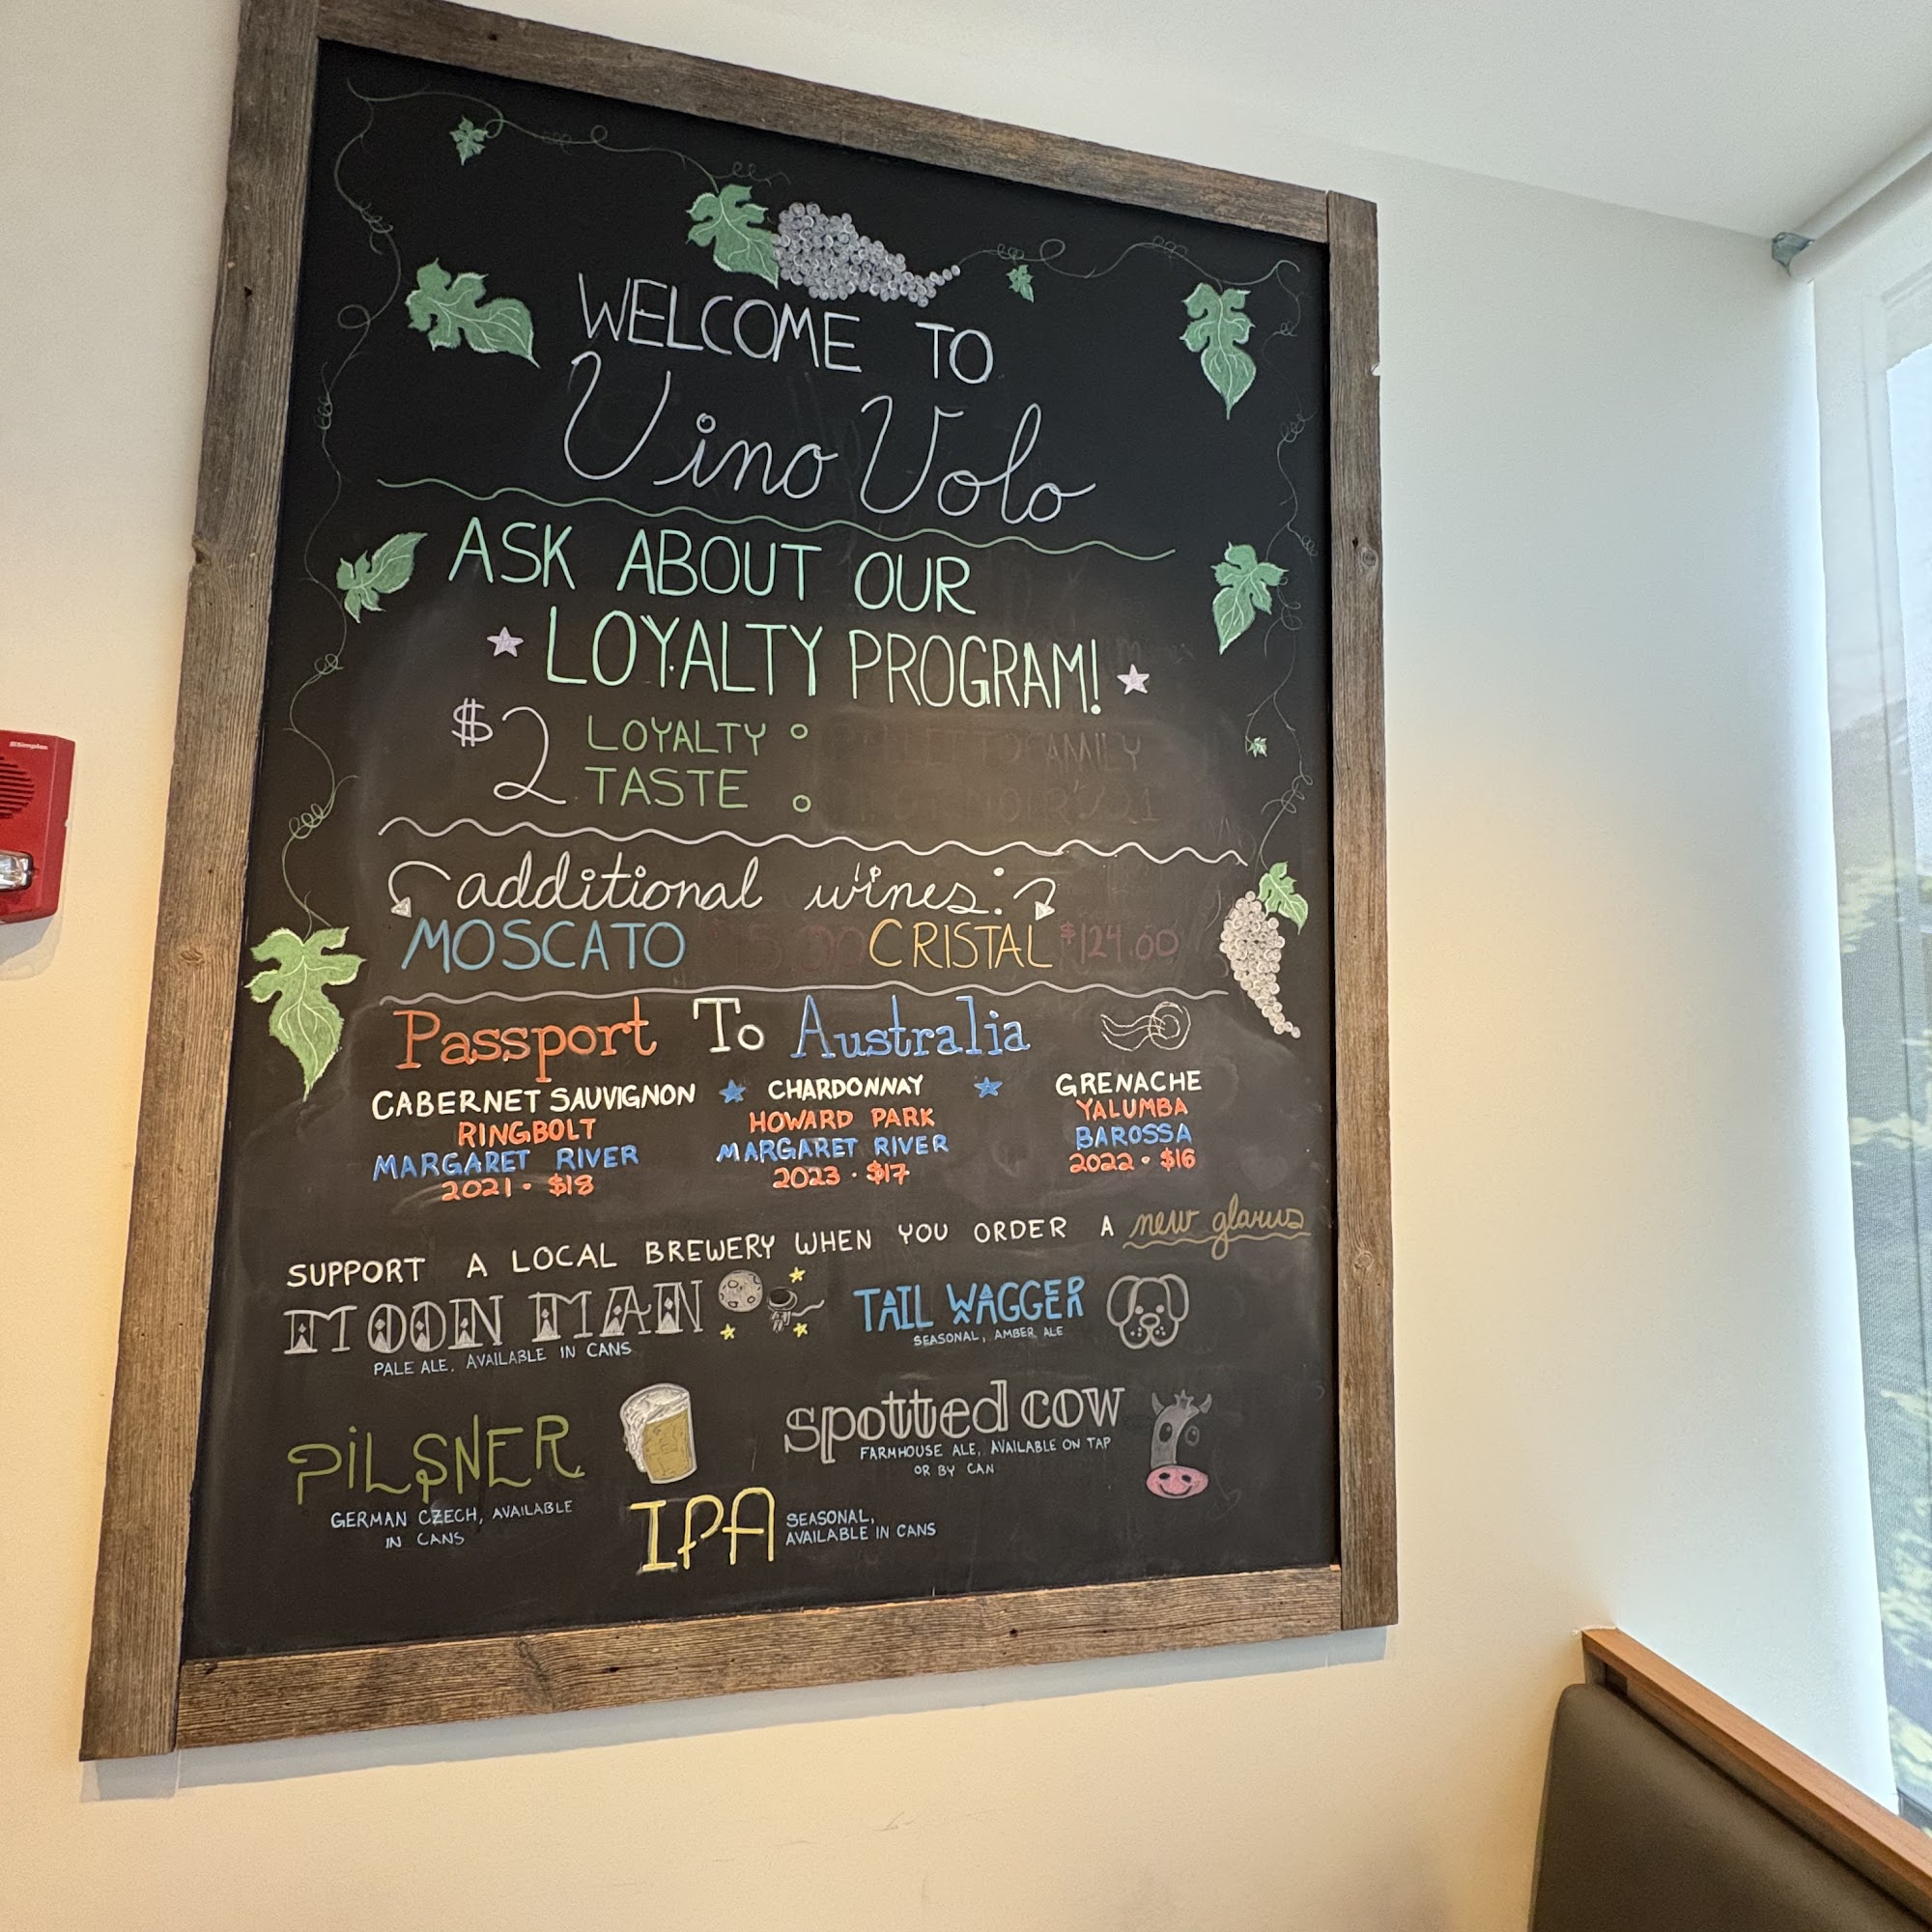 WELCOME TO
Vino Volo
ASK ABOUT OUR
LOYALTY PROGRAM!
$2 LOYALTY :
TASTE
additional wines:
MOSCATO CRISTAL $124.00
Passport To Australia
CABERNET SAUVIGNON
RINGBOLT
MARGARET RIVER
2021 · $18
CHARDONNAY
HOWARD PARK
MARGARET RIVER
2023 · $17
GRENACHE
YALUMBA
BAROSSA
2022 · $16
SUPPORT A LOCAL BREWERY WHEN YOU ORDER A new glarus
MOON MAN
PALE ALE, AVAILABLE IN CANS
TAIL WAGGER
SEASONAL, AMBER ALE
PILSNER
GERMAN CZECH, AVAILABLE
IN CANS
spotted cow
FARMHOUSE ALE, AVAILABLE ON TAP
OR BY CAN
IPA
SEASONAL,
AVAILABLE IN CANS
Simplex